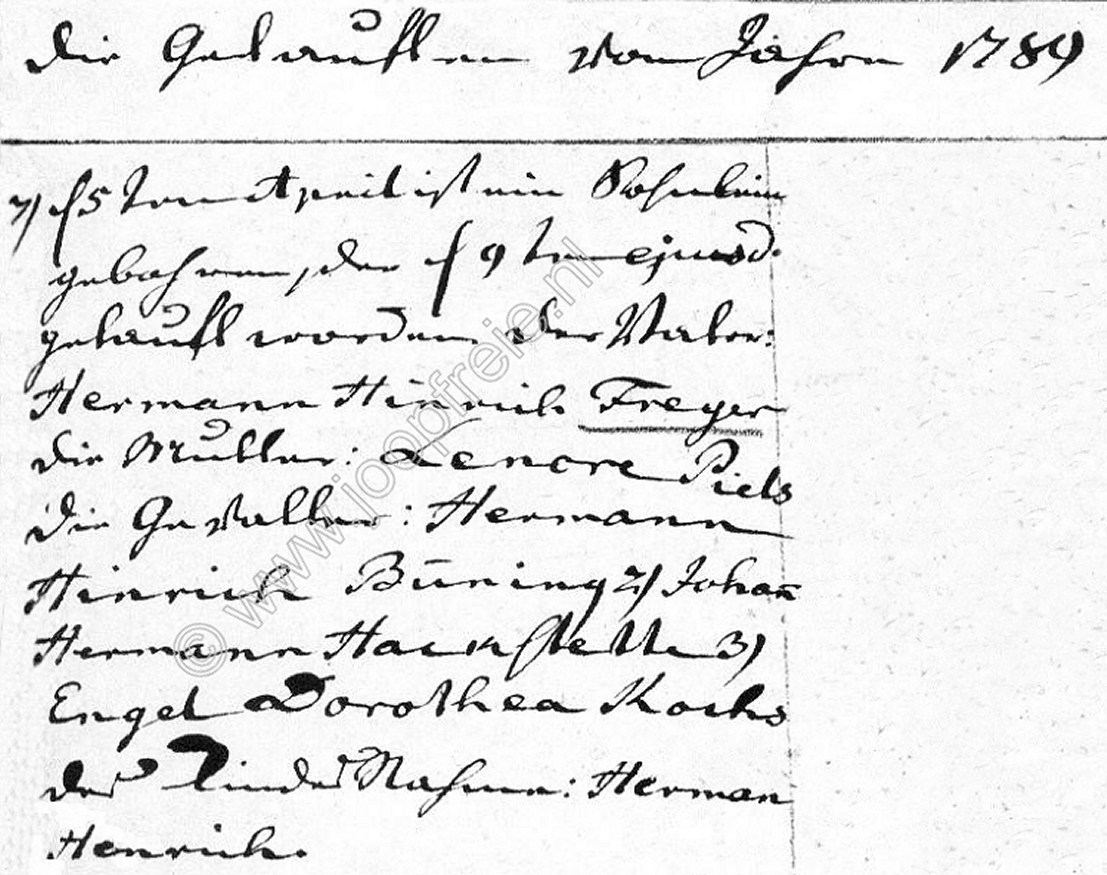 die Getauften vom Jahre 1789
7) d 15ten April ist ein Söhnlein
gebohren, der d 19ten ejusd.
getauft worden der Vater:
Hermann Hinrich Freyer
die Mutter: Lenore Piels
die Gevatter: Hermann
Hinrich Büning 2) Johan̄
Hermann Hackstette 3)
Engel Dorothea Kochs
des Kindes Nahme: Herman
Henrich.
© www.joopfreie.nl